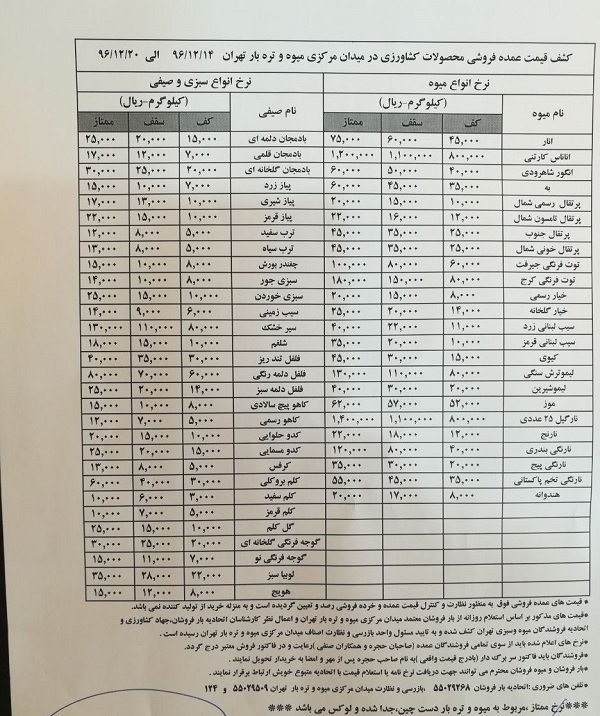 کشف قیمت عمده فروشی محصولات کشاورزی در میدان مرکزی میوه و تره بار تهران ۹۶/۱۲/۱۴ الی ۹۶/۱۲/۲۰
نرخ انواع میوه نرخ انواع سبزی و صیفی
نام میوه (کیلوگرم-ریال) نام صیفی (کیلوگرم-ریال)
کف سقف ممتاز کف سقف ممتاز
انار ۴۵,۰۰۰ ۶۰,۰۰۰ ۷۵,۰۰۰ بادمجان دلمه ای ۱۵,۰۰۰ ۲۰,۰۰۰ ۲۵,۰۰۰
اناناس کارتنی ۸۰۰,۰۰۰ ۱,۱۰۰,۰۰۰ ۱,۲۰۰,۰۰۰ بادمجان قلمی ۷,۰۰۰ ۱۲,۰۰۰ ۱۷,۰۰۰
انگور شاهرودی ۴۰,۰۰۰ ۵۰,۰۰۰ ۶۰,۰۰۰ بادمجان گلخانه ای ۲۰,۰۰۰ ۲۵,۰۰۰ ۳۰,۰۰۰
به ۳۵,۰۰۰ ۴۵,۰۰۰ ۶۰,۰۰۰ پیاز زرد ۷,۰۰۰ ۱۰,۰۰۰ ۱۵,۰۰۰
پرتقال رسمی شمال ۱۰,۰۰۰ ۱۵,۰۰۰ ۲۰,۰۰۰ پیاز شیری ۱۰,۰۰۰ ۱۳,۰۰۰ ۱۷,۰۰۰
پرتقال تامسون شمال ۱۲,۰۰۰ ۱۶,۰۰۰ ۲۲,۰۰۰ پیاز قرمز ۱۰,۰۰۰ ۱۵,۰۰۰ ۲۲,۰۰۰
پرتقال جنوب ۲۵,۰۰۰ ۳۵,۰۰۰ ۴۵,۰۰۰ ترب سفید ۵,۰۰۰ ۸,۰۰۰ ۱۲,۰۰۰
پرتقال خونی شمال ۲۵,۰۰۰ ۳۵,۰۰۰ ۴۵,۰۰۰ ترب سیاه ۵,۰۰۰ ۸,۰۰۰ ۱۳,۰۰۰
توت فرنگی جیرفت ۶۰,۰۰۰ ۸۰,۰۰۰ ۱۰۰,۰۰۰ چغندر بورش ۸,۰۰۰ ۱۰,۰۰۰ ۱۵,۰۰۰
توت فرنگی کرج ۸۰,۰۰۰ ۱۵۰,۰۰۰ ۱۸۰,۰۰۰ سبزی جور ۸,۰۰۰ ۱۰,۰۰۰ ۱۴,۰۰۰
خیار رسمی ۸,۰۰۰ ۱۵,۰۰۰ ۲۰,۰۰۰ سبزی خوردن ۱۰,۰۰۰ ۱۵,۰۰۰ ۲۵,۰۰۰
خیار گلخانه ۱۴,۰۰۰ ۲۰,۰۰۰ ۲۵,۰۰۰ سیب زمینی ۶,۰۰۰ ۹,۰۰۰ ۱۴,۰۰۰
سیب لبنانی زرد ۱۱,۰۰۰ ۲۲,۰۰۰ ۴۰,۰۰۰ سیر خشک ۸۰,۰۰۰ ۱۱۰,۰۰۰ ۱۳۰,۰۰۰
سیب لبنانی قرمز ۱۰,۰۰۰ ۲۰,۰۰۰ ۳۵,۰۰۰ شلغم ۱۰,۰۰۰ ۱۵,۰۰۰ ۱۸,۰۰۰
کیوی ۱۵,۰۰۰ ۳۰,۰۰۰ ۴۵,۰۰۰ فلفل تند ریز ۳۰,۰۰۰ ۳۵,۰۰۰ ۴۰,۰۰۰
لیموترش سنگی ۸۰,۰۰۰ ۱۱۰,۰۰۰ ۱۳۰,۰۰۰ فلفل دلمه رنگی ۶۰,۰۰۰ ۷۰,۰۰۰ ۸۰,۰۰۰
لیموشیرین ۲۰,۰۰۰ ۳۰,۰۰۰ ۴۰,۰۰۰ فلفل دلمه سبز ۱۴,۰۰۰ ۲۰,۰۰۰ ۲۵,۰۰۰
موز ۵۲,۰۰۰ ۵۷,۰۰۰ ۶۲,۰۰۰ کاهو پیچ سالادی ۸,۰۰۰ ۱۰,۰۰۰ ۱۵,۰۰۰
نارگیل ۲۵ عددی ۸۰۰,۰۰۰ ۱,۱۰۰,۰۰۰ ۱,۴۰۰,۰۰۰ کاهو رسمی ۵,۰۰۰ ۷,۰۰۰ ۱۲,۰۰۰
نارنج ۱۲,۰۰۰ ۱۸,۰۰۰ ۲۲,۰۰۰ کدو حلوایی ۱۰,۰۰۰ ۱۵,۰۰۰ ۲۰,۰۰۰
نارنگی بندری ۴۰,۰۰۰ ۸۰,۰۰۰ ۱۲۰,۰۰۰ کدو مسمایی ۱۵,۰۰۰ ۲۰,۰۰۰ ۲۵,۰۰۰
نارنگی پیج ۲۰,۰۰۰ ۳۰,۰۰۰ ۳۵,۰۰۰ کرفس ۵,۰۰۰ ۸,۰۰۰ ۱۳,۰۰۰
نارنگی تخم پاکستانی ۳۵,۰۰۰ ۴۵,۰۰۰ ۵۵,۰۰۰ کلم بروکلی ۳۰,۰۰۰ ۴۰,۰۰۰ ۶۰,۰۰۰
هندوانه ۸,۰۰۰ ۱۷,۰۰۰ ۲۰,۰۰۰ کلم سفید ۳,۰۰۰ ۶,۰۰۰ ۱۰,۰۰۰
کلم قرمز ۵,۰۰۰ ۷,۰۰۰ ۱۰,۰۰۰
گل کلم ۱۰,۰۰۰ ۱۵,۰۰۰ ۲۵,۰۰۰
گوجه فرنگی گلخانه ای ۲۰,۰۰۰ ۲۵,۰۰۰ ۳۰,۰۰۰
گوجه فرنگی نو ۷,۰۰۰ ۱۱,۰۰۰ ۱۵,۰۰۰
لوبیا سبز ۲۲,۰۰۰ ۲۸,۰۰۰ ۳۵,۰۰۰
هویج ۸,۰۰۰ ۱۲,۰۰۰ ۱۵,۰۰۰
* قیمت های عمده فروشی فوق به منظور نظارت و کنترل قیمت عمده و خرده فروشی رصد و تعیین گردیده است و به منزله خرید از تولید کننده نمی باشد.
*قیمت های مذکور بر اساس استعلام روزانه از بار فروشان معتمد میدان مرکزی میوه و تره بار تهران و اعمال نظر کارشناسان اتحادیه بار فروشان،جهاد کشاورزی و
اتحادیه فروشندگان میوه وسبزی تهران کشف شده و به تایید مسئول واحد بازرسی و نظارت اصناف میدان مرکزی میوه و تره بار تهران رسیده است .
*نرخ های اعلام شده باید از سوی تمامی فروشندگان عمده (صاحبان حجره و همکاران صنفی )رعایت و در فاکتور فروش معتبر درج گردد.
*فروشندگان باید فاکتور سر برگ دار (بادرج قیمت واقعی )به نام صاحب حجره پس از مهر و امضا به خریدار تحویل نمایند .
*بار فروشان و میوه فروشان محترم می توانند جهت دریافت نرخ نامه یا استعلام قیمت با اتحادیه متبوع خویش ارتباط برقرار نمایند.
*تلفن های ضروری :اتحادیه بار فروشان ۵۵۰۲۹۲۶۸ ،بازرسی و نظارت میدان مرکزی میوه و تره بار تهران ۵۵۰۲۹۵۰۹ و ۱۲۴
***نرخ ممتاز ،مربوط به میوه و تره بار دست چین،جدا شده و لوکس می باشد ***